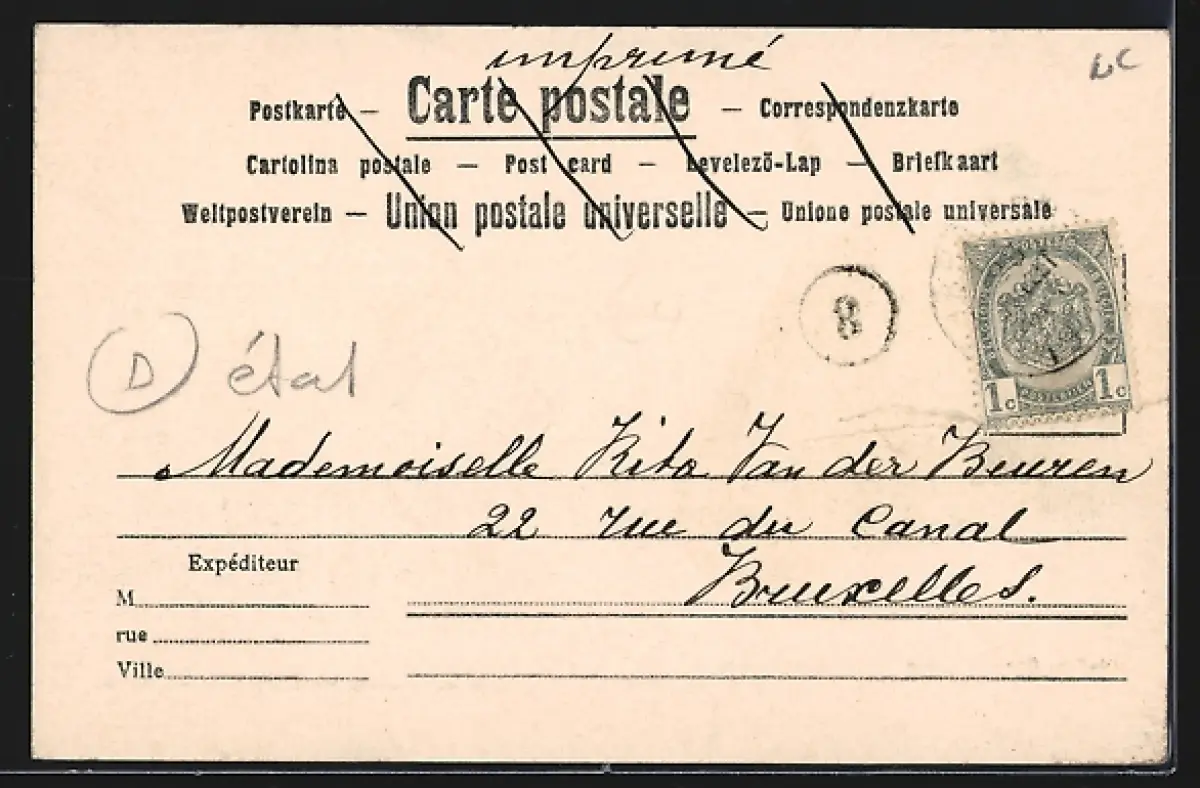 imprimé
Postkarte — Carte postale — Correspondenzkarte
Cartolina postale — Post card — Levelező-Lap — Briefkaart
Weltpostverein — Union postale universelle — Unione postale universale
8
1c 1c
POSTERIJEN
D état
Mademoiselle Rita Van der Beuren
22 rue du Canal
Bruxelles.
Expéditeur
M
rue
Ville